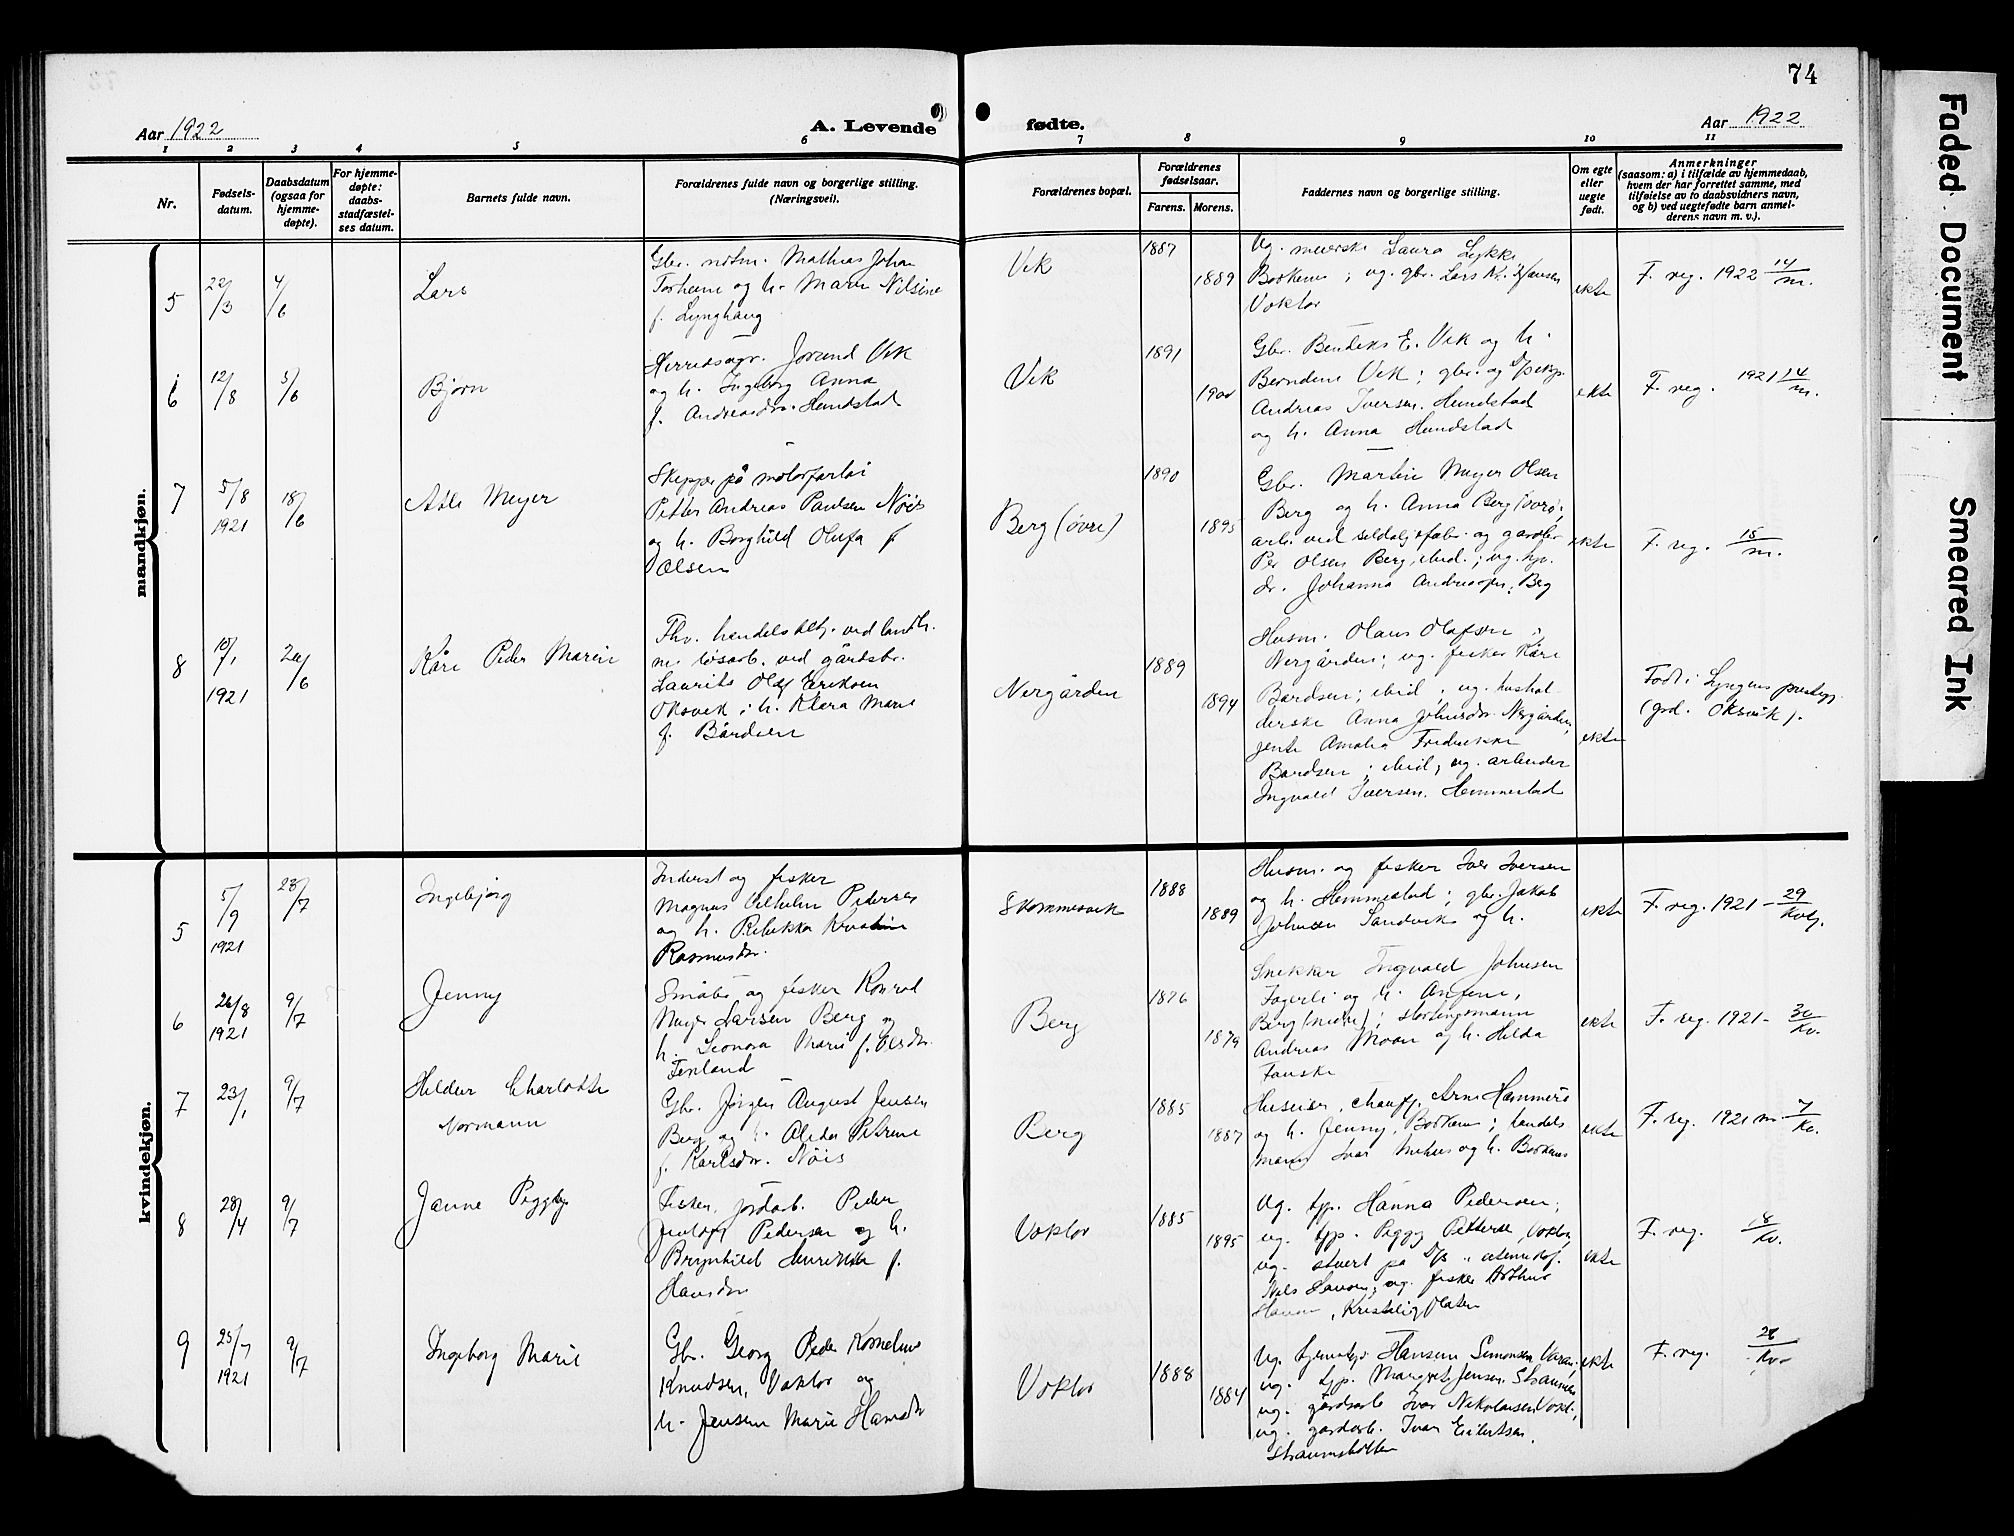 74
Aar 1922
A. Levende
fødte.
Aar 1922
1 2 3 4 5 6 7 8 9 10 11
Nr.
Fødsels-
datum.
Daabsdatum
(ogsaa for
hjemme-
døpte).
For hjemme-
døpte:
daabs-
stadfæstel-
ses datum.
Barnets fulde navn.
Forældrenes fulde navn og borgerlige stilling.
(Næringsvei).
Forældrenes bopæl.
Forældrenes
fødselsaar.
Farens. Morens.
Faddernes navn og borgerlige stilling.
Om egte
eller
uegte
født.
Anmerkninger
(saasom: a) i tilfælde av hjemmedaab,
hvem der har forrettet samme, med
tilføielse av to daabsvidners navn,
og b) ved uegtefødte barn anmel-
derens navn m. v.).
mandkjøn.
5
22/3
4/6
Lars
Gbr. Mathias Johan
Torheim og h. Maren Nilsine
f. Lynghaug
Vik
1887
1889
Ug. meierske Laura Lykke
Borkenes; ug. gbr. Lars
Voktor
ekte
F. reg. 1922 14/m.
6
12/8
5/6
Bjørn
Herredsagr. Jorund Vik
og h. Ingeborg Anna
f. Andreasdr. Hundstad
Vik
1891
1900
Gbr. Bendiks E. Vik og h.
Berndine Vik; gbr. og
Andreas Iversen Hundstad
og h. Anna Hundstad
ekte
F. reg. 1921 14/m.
7
5/8
1921
18/6
Atle Meyer
Skipper på motorfartøi
Petter Andreas Paulsen Nöis
og h. Borghild Olufa f
Olsen
Berg (övre)
1890
1895
Gbr. Martin Meyer Olsen
Berg og h. Anna Berg (övre);
arb. ved sildoljefabr. og gardbr.
Per Olsen Berg, ibid.; ug.
Johanna Berg
ekte
F. reg. 15/m.
8
10/1
1921
24/6
Kåre Peder Marin
Fhv. handelsbetj. ved landh.
løsarb. ved gårdsbr.
Laurits Olaf Eriksen
Oksvik; h. Klara Marie
f. Bårdsen
Nergården
1889
1894
Husm. Olaus Olafsen
Nergården; ug. fisker Kåre
Bardsen; ibid; ug. hushol-
derske Anna Johnsdr. Nergården;
jente Amalia Fredrikke
Bardsen; ibid; ug. arbeider
Ingvald Iversen, Hemmestad
ekte
Født i Lyngens prestegj.
(grd. Oksvik).
kvindekjøn.
5
5/9
1921
23/7
Ingebjörg
Inderst og fisker
Magnus Vilhelm Pedersen
og h. Rebekka Kristine
Rasmusdr.
Skommesvik
1888
1889
Husm. og fisker Iver Iversen
og h. Hemmestad; gbr. Jakob
Johnsen Sandvik og h.
ekte
F. reg. 1921 - 29/kvkj.
6
26/8
1921
9/7
Jenny
Småbr. og fisker Konrad
Meyer Larsen Berg og
h. Leonora Marie f. Elisdr.
Finland
Berg
1876
1879
Snekker Ingvald Johnsen
Fagerli og h. Anfine,
Berg (nedre); stortingsmann
Andreas Moan og h. Hilda
Fauske
ekte
F. reg. 1921 - 30/Kv.
7
23/1
9/7
Heldur Charlotte
Normann
Gbr. Jörgen August Jensen
Berg og h. Alida Petrine
f. Karlsdr. Nöis
Berg
1885
1887
Huseier, chauff. Arne Hammerö
og h. Jenny, Borkenes; handels-
mann Ivar Mehus og h. Borkenes
ekte
F. reg. 1921 m 7/Kv.
8
28/4
9/7
Janne Peggy
Fisker, jordarb. Peder
Jentoft Pedersen og h.
Brynhild Henrikke f.
Hansdr
Voktor
1885
1895
Ug. tjp. Hanna Pedersen;
ug. tjp. Peggy Pettersen, Voktor,
ug. stuert på D/S
Nils Hansen; ug. fisker Arthur
Hansen,
ekte
F. reg. 8/Kv.
9
25/7
1921
9/7
Ingeborg Marie
Gbr. Georg Peder Kornelius
Knudsen, Voktor og
h. Jensine Marie Hansdr
Voktor
1888
1884
Ug. Hansen Simonsen
ug. tjp. Margret Jensen
ug. gårdsarb. Ivar Nikolaisen Vokt.,
ug. gardarb. Ivar Eilertsen,
Straumsbotten
ekte
F. reg. 28/Kv.
Faded Document
Smeared Ink